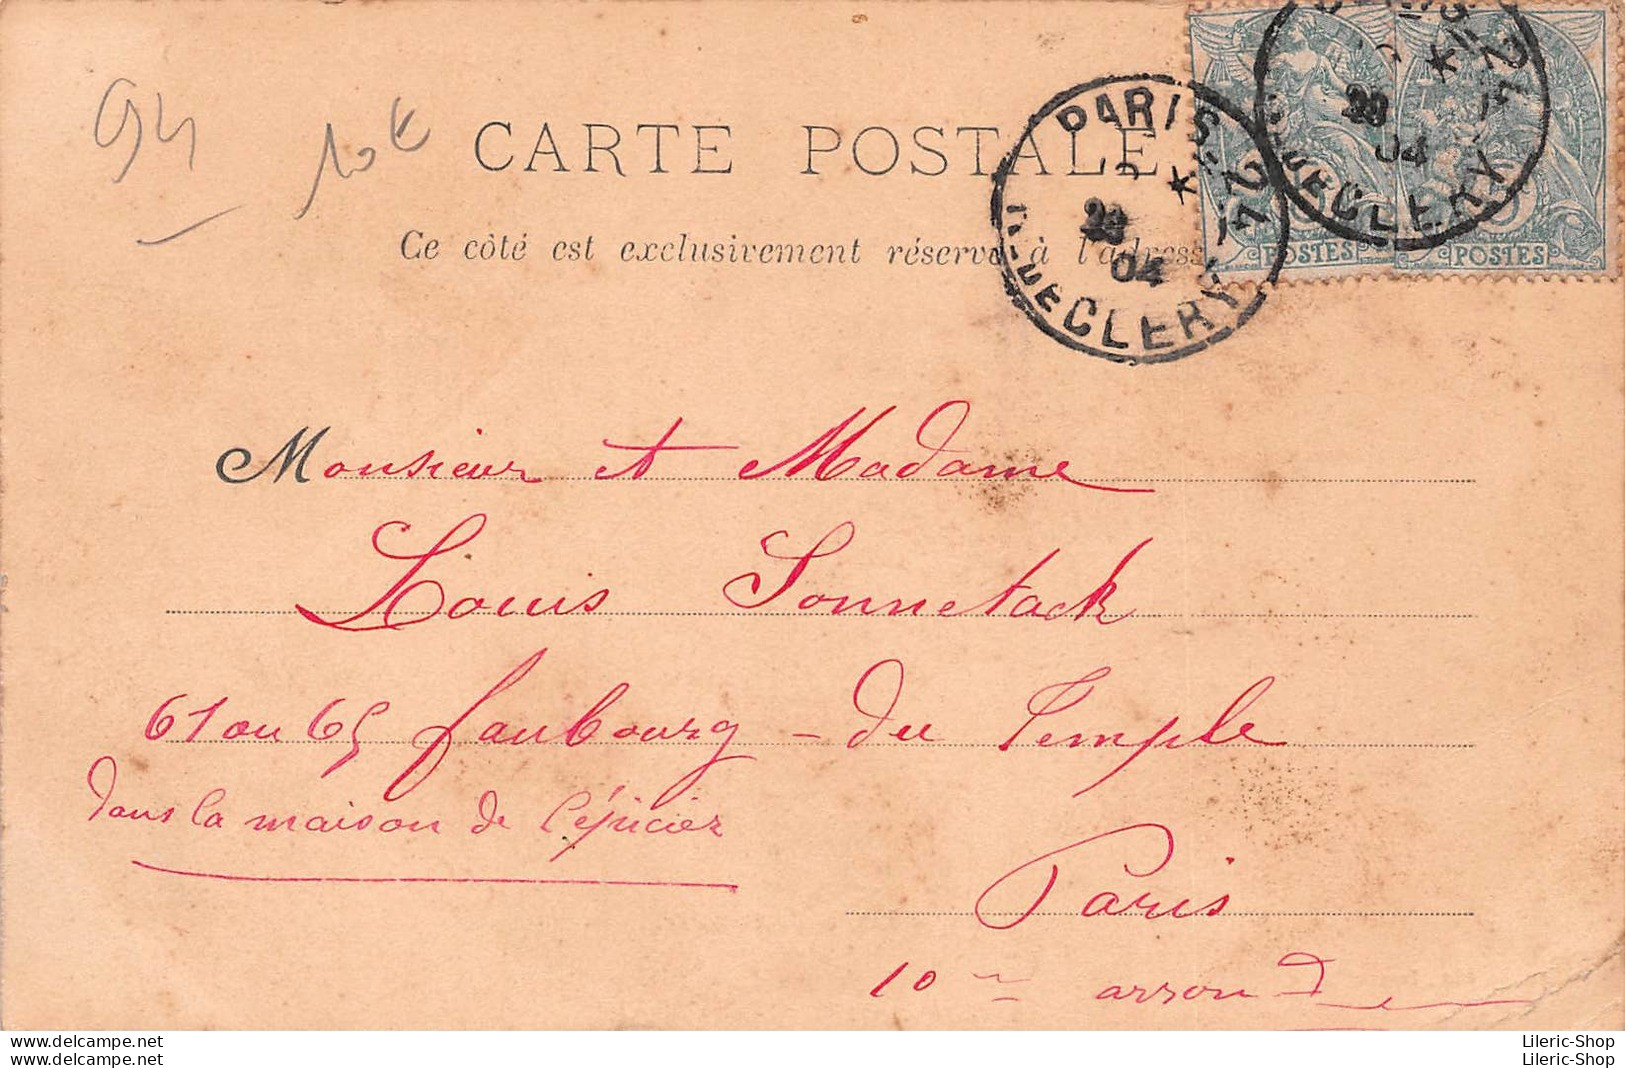 94
10€
CARTE POSTALE
Ce côté est exclusivement réservé à l'adresse
PARIS 24
28
04
R. DE CLERY
28
04
DE CLERY
POSTES
POSTES
Monsieur et Madame
Louis Sonnetack
61 ou 65 faubourg - du Temple
dans la maison de l'épicier
Paris
10me arrondt
www.delcampe.net
www.delcampe.net
Lileric-Shop
Lileric-Shop